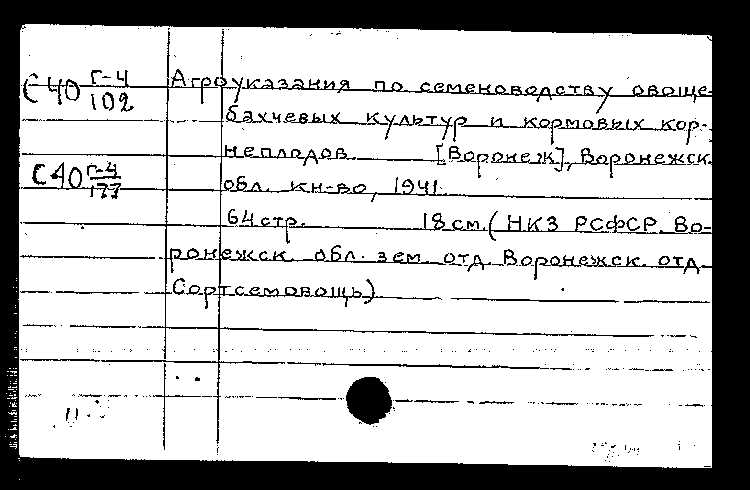 С40 Г-4/102
Агроуказания по семеноводству овоще-
бахчевых культур и кормовых кор-
неплодов. [Воронеж], Воронежск.
С40 Г-4/177
обл. кн-во, 1941.
64 стр. 18 см. (НКЗ РСФСР. Во-
ронежск. обл. зем. отд. Воронежск. отд.
Сортсемовощь)